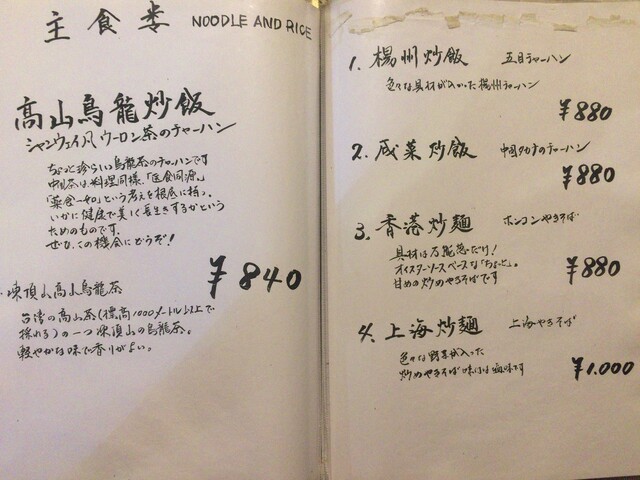 主食类 NOODLE AND RICE
高山烏龍炒飯
シャンウェイ風 ウーロン茶のチャーハン
ちょっと珍らしい烏龍茶のチャーハンです
中国茶は、料理同様、「医食同源」
「薬食一如」という考えを根底に持つ、
いかに健康で美しく長生きするかという
ためのものです。
ぜひ、この機会にどうぞ!
¥840
凍頂山高山烏龍茶
台湾の高山茶(標高1000メートル以上で
採れる)の一つ凍頂山の烏龍茶。
軽やかな味で香りがよい。
1. 楊州炒飯 五目チャーハン
色々な具材が入った楊州チャーハン
¥880
2. 咸菜炒飯 中国タカナのチャーハン
¥880
3. 香港炒麺 ホンコンやきそば
具材は万能葱だけ!
オイスターソースベースな「ちょっと」。
甘めの炒めやきそばです
¥880
4. 上海炒麺 上海やきそば
色々な野菜が入った
炒めやきそば 味は 歯味です
¥1.000